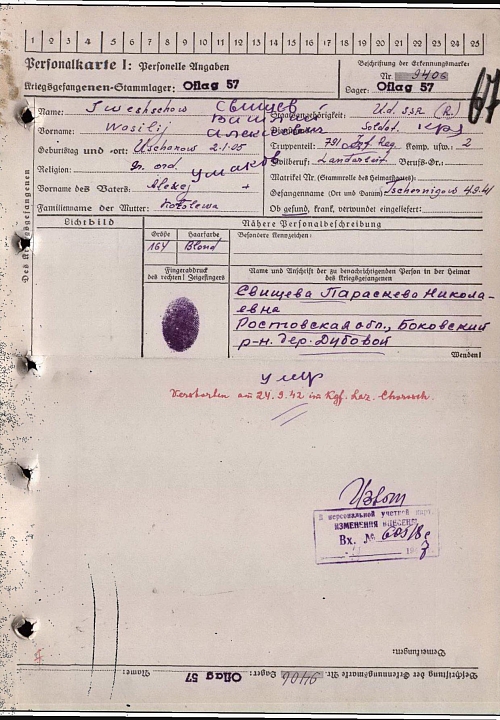 1 2 3 4 5 6 7 8 9 10 11 12 13 14 15 16 17 18 19 20 21 22 23 24 25
Personalkarte I: Personelle Angaben
Beschriftung der Erkennungsmarke
Nr. 9406
67
Kriegsgefangenen-Stammlager: Oflag 57
Lager: Oflag 57
Des Kriegsgefangenen
Name: Sweschschow Свищев
Staatsangehörigkeit: Ud.SSR (R.)
Vorname: Wasilij Василий
Dienstgrad: Soldat кр
Алексеевич
Geburtstag und -ort: 2.1.05
Truppenteil: 791 Inf. Reg. Komp. usw.: 2
Religion: Gr. ord
Zivilberuf: Landarbeit. Berufs-Gr.:
Matrikel Nr. (Stammrolle des Heimatstaates):
Vorname des Vaters: Alekej +
Gefangennahme (Ort und Datum) Tschernigow 4.9.41
Familienname der Mutter:
Ob gesund, krank, verwundet eingeliefert:
Lichtbild
Nähere Personalbeschreibung
Größe Haarfarbe Besondere Kennzeichen:
164 Blond
Fingerabdruck
des rechten! Zeigefingers
Name und Anschrift der zu benachrichtigenden Person in der Heimat
des Kriegsgefangenen
Свищева Параскева Никола-
евна
Ростовская обл., Боковский
р-н. дер. Дубовой
Wenden!
умер
Verstorben am 24.9.42 im Kgf. Laz.
В персональной учетной карт.
ИЗМЕНЕНИЯ ВНЕСЕНЫ
Вх. №
Bemerkungen:
Beschriftung der Erkennungsmarke Nr. 9406 Lager: Oflag 57 Name: